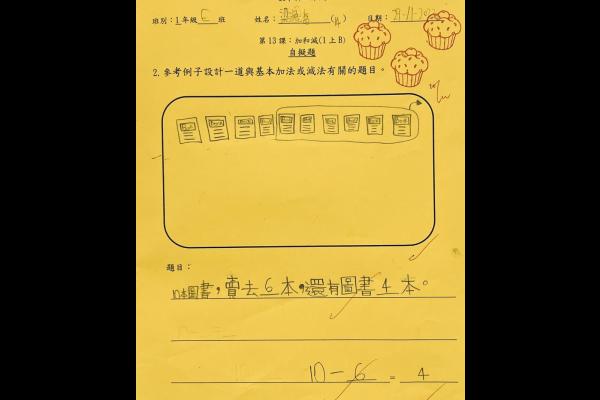 班別：1年級E班 姓名： 日期：
第13課：加和減(1上B)
自擬題
2.參考例子設計一道與基本加法或減法有關的題目。
題目：
10本圖書，賣去6本，還有圖書4本。
10－6＝4